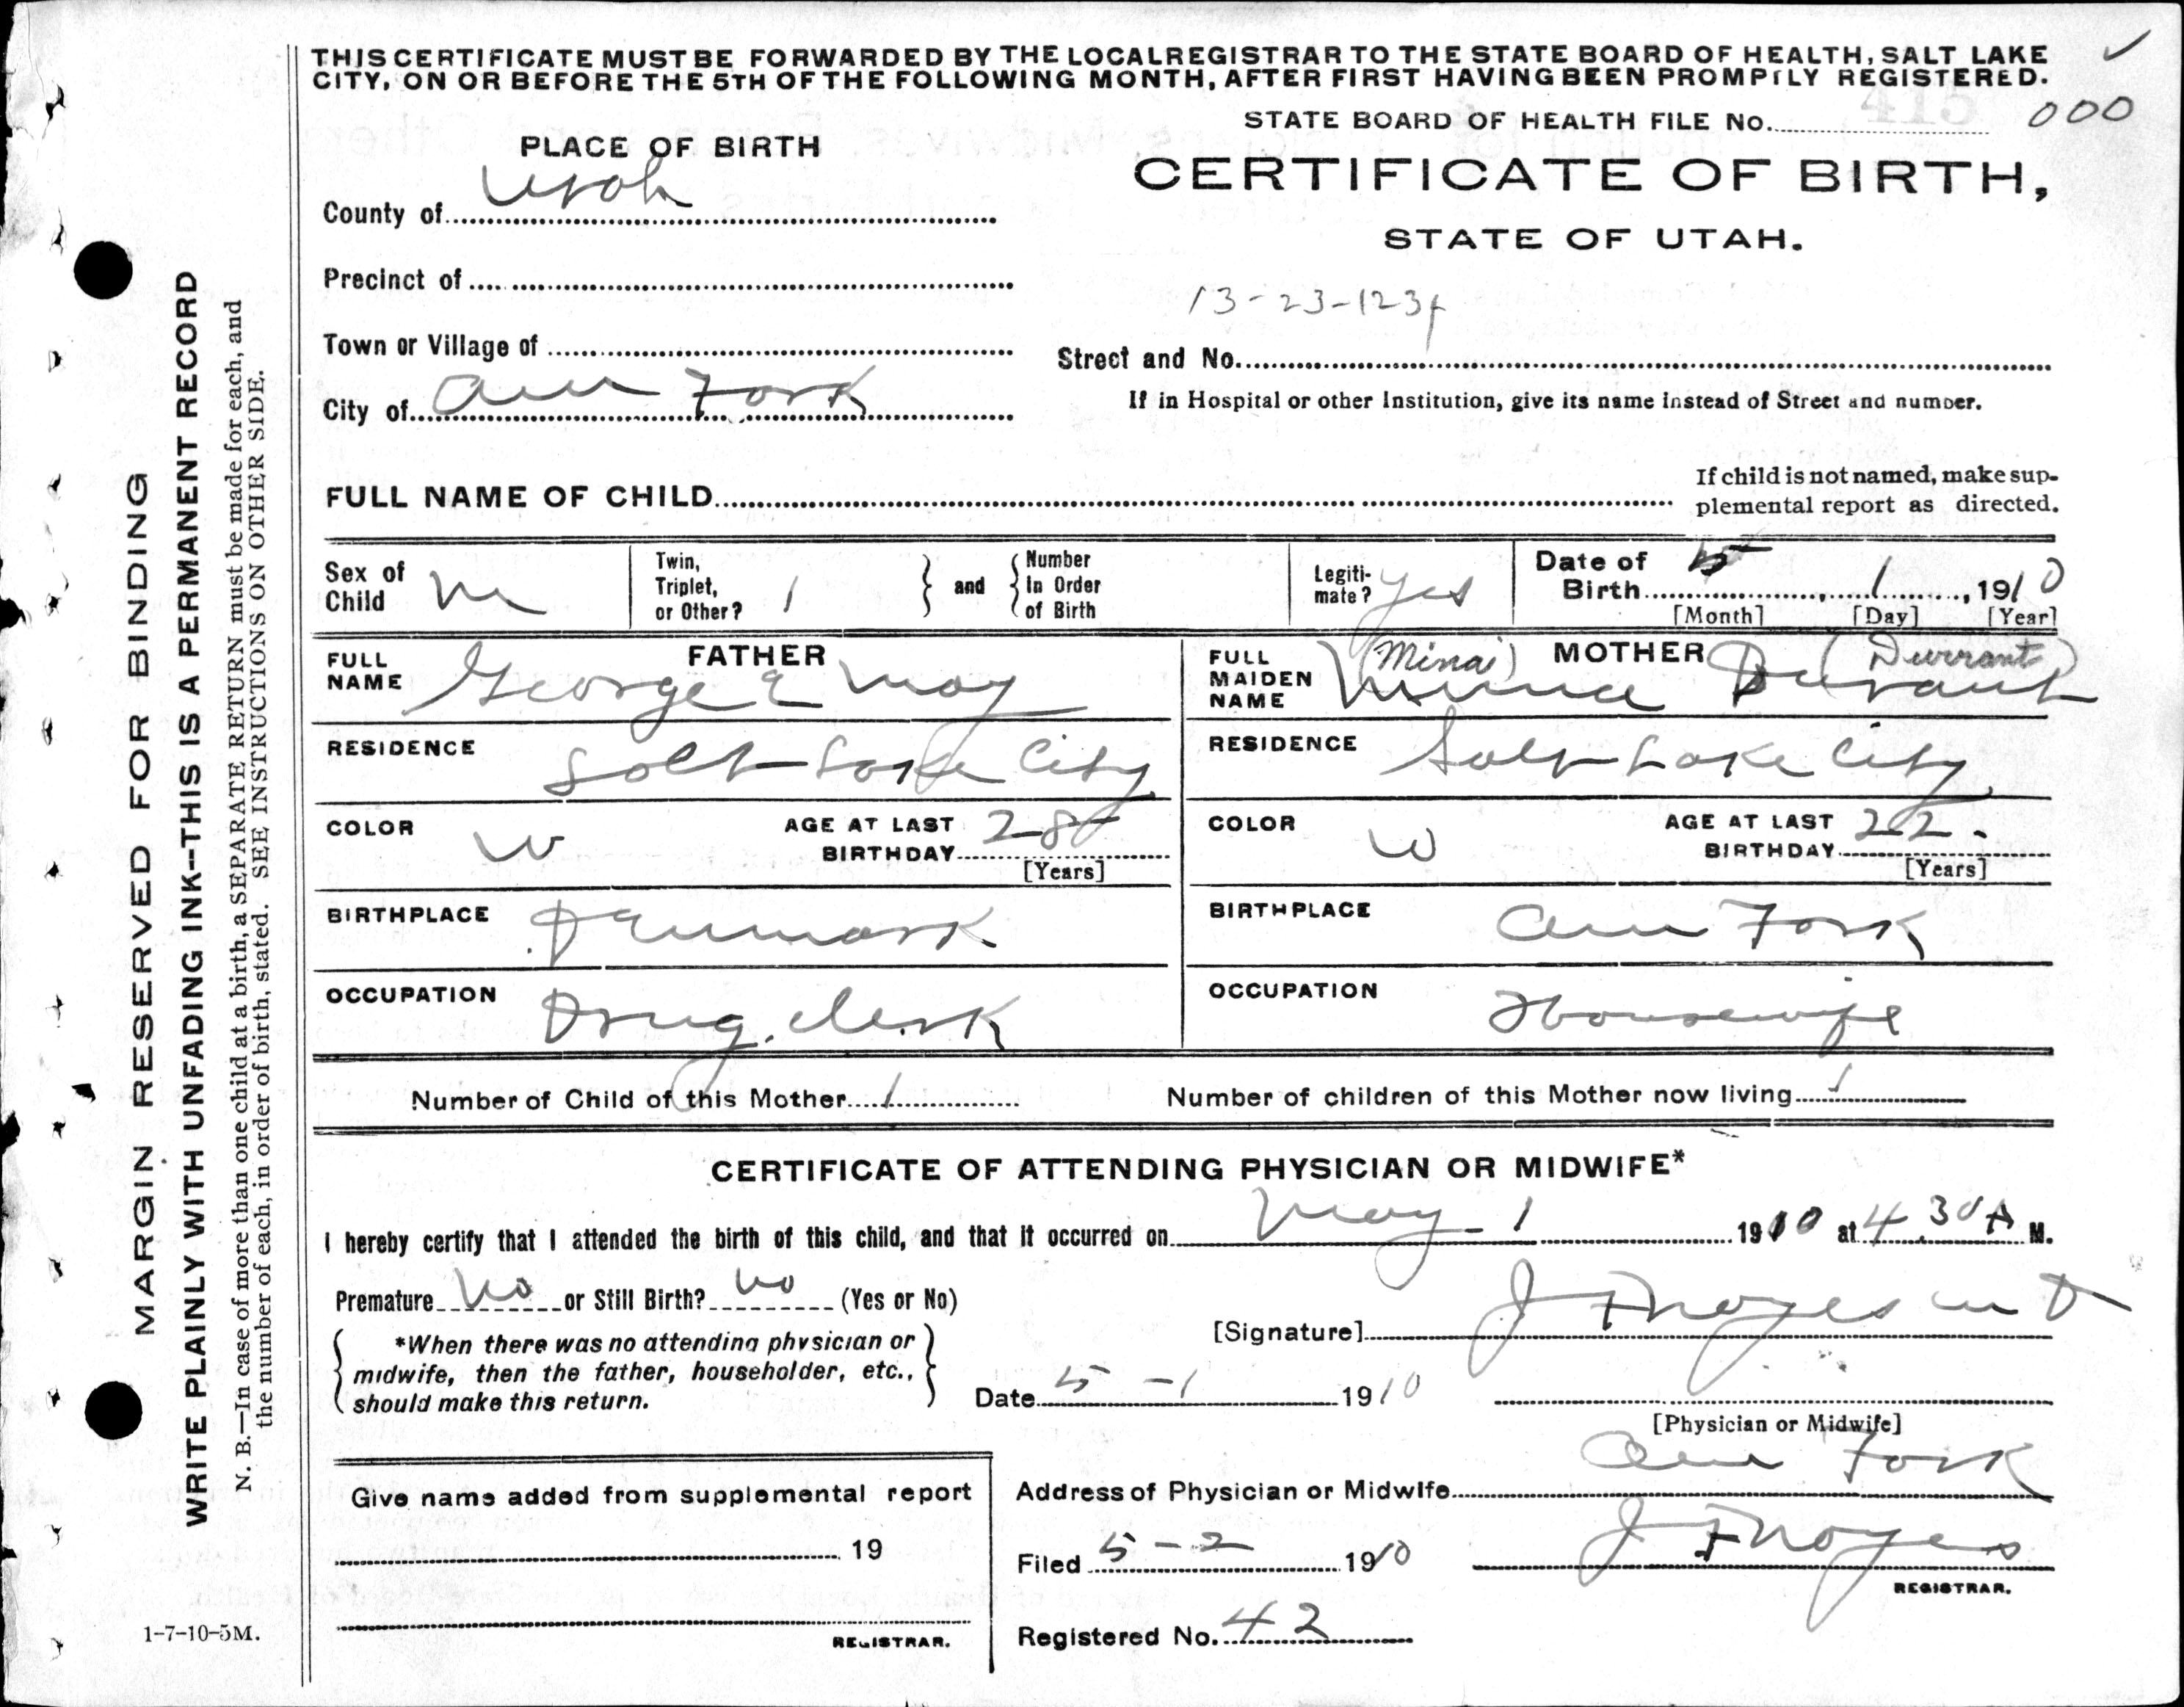 THIS CERTIFICATE MUST BE FORWARDED BY THE LOCAL REGISTRAR TO THE STATE BOARD OF HEALTH, SALT LAKE
CITY, ON OR BEFORE THE 5TH OF THE FOLLOWING MONTH, AFTER FIRST HAVING BEEN PROMPTLY REGISTERED.
STATE BOARD OF HEALTH FILE No. 415 000
PLACE OF BIRTH
CERTIFICATE OF BIRTH,
STATE OF UTAH.
County of Utah
Precinct of
13-23-1234
Town or Village of
Street and No.
City of Am Fork
If in Hospital or other Institution, give its name instead of Street and number.
FULL NAME OF CHILD
If child is not named, make sup-
plemental report as directed.
Sex of Child M
Twin, Triplet, or Other? 1
and
Number In Order of Birth
Legiti-mate? yes
Date of Birth 5, 1, 1910
[Month] [Day] [Year]
FATHER
FULL NAME George E May
RESIDENCE Salt Lake City
COLOR W
AGE AT LAST BIRTHDAY 28
[Years]
BIRTHPLACE Denmark
OCCUPATION Drug. Clerk
MOTHER
FULL MAIDEN NAME (Mina) Minnie Durant (Durrant)
RESIDENCE Salt Lake City
COLOR W
AGE AT LAST BIRTHDAY 22.
[Years]
BIRTHPLACE Am Fork
OCCUPATION Housewife
Number of Child of this Mother 1
Number of children of this Mother now living 1
CERTIFICATE OF ATTENDING PHYSICIAN OR MIDWIFE*
I hereby certify that I attended the birth of this child, and that it occurred on May - 1 1910 at 4.30 A M.
Premature No or Still Birth? No (Yes or No)
*When there was no attending physician or
midwife, then the father, householder, etc.,
should make this return.
[Signature] J F Noyes M D
Date 5 - 1 1910
[Physician or Midwife]
Give name added from supplemental report
19
REGISTRAR.
Address of Physician or Midwife Am Fork
Filed 5 - 2 1910
J F Noyes
REGISTRAR.
Registered No. 42
1-7-10-5M.
MARGIN RESERVED FOR BINDING
WRITE PLAINLY WITH UNFADING INK--THIS IS A PERMANENT RECORD
N. B.—In case of more than one child at a birth, a SEPARATE RETURN must be made for each, and
the number of each, in order of birth, stated. SEE INSTRUCTIONS ON OTHER SIDE.